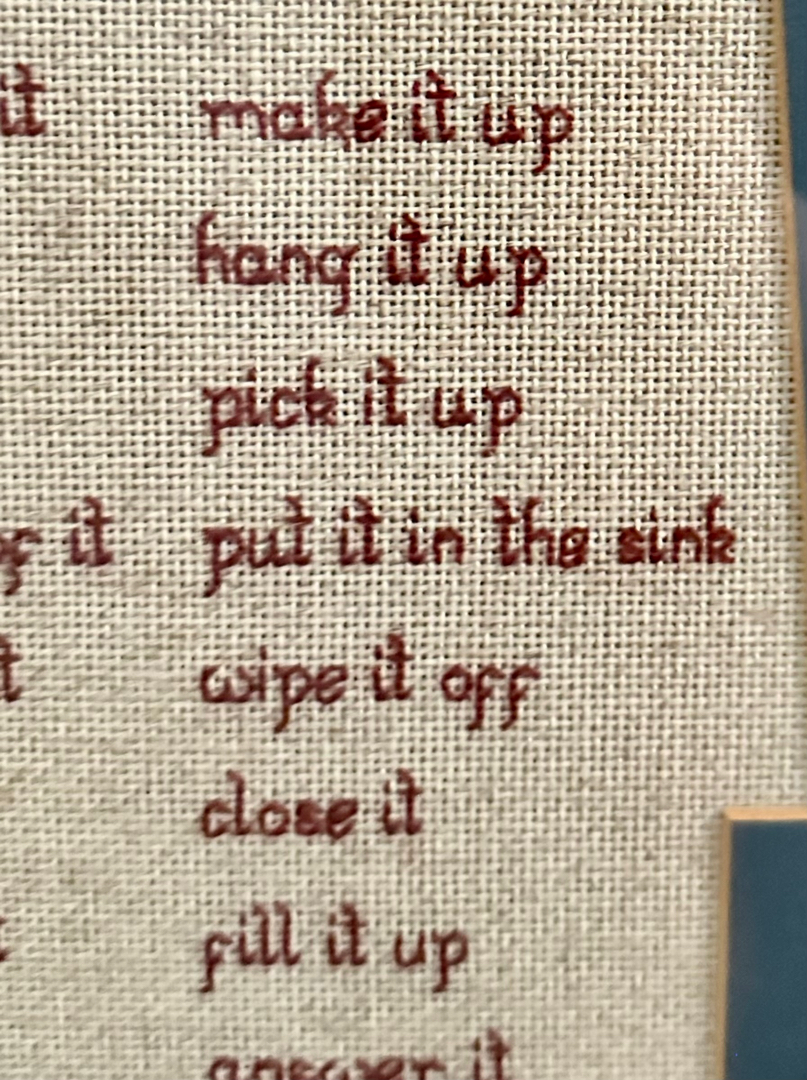 it make it up
hang it up
pick it up
it put it in the sink
wipe it off
close it
fill it up
answer it